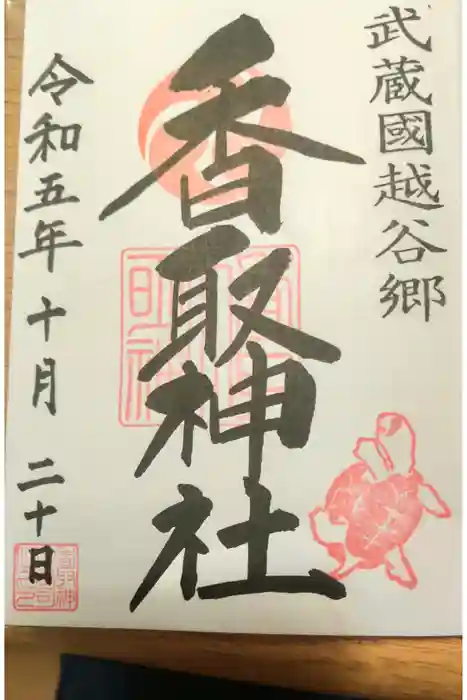 武蔵國越谷郷
香取神社
令和五年十月二十日